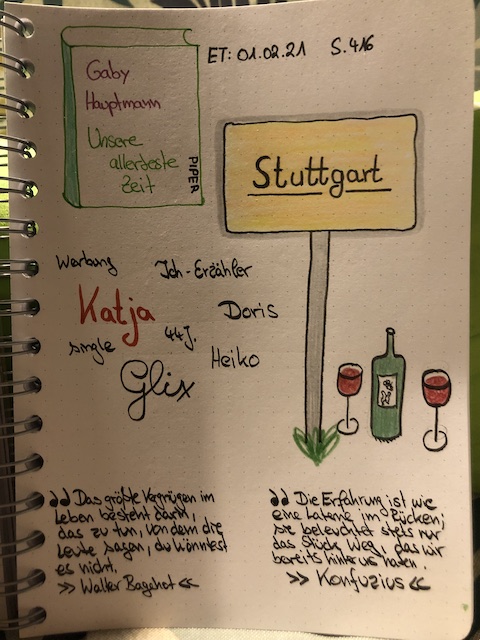 ET: 01.02.21 S. 416
Gaby
Hauptmann
Unsere
allerbeste
Zeit
PIPER
Stuttgart
Werbung Ich-Erzähler
Katja Doris
44J.
single Heiko
Glix
Das größte Vergnügen im
Leben besteht darin,
das zu tun, von dem die
Leute sagen, du könntest
es nicht.
» Walter Bagehot «
Die Erfahrung ist wie
eine Laterne im Rücken;
sie beleuchtet stets nur
das Stück Weg, das wir
bereits hinter uns haben.
» Konfuzius «